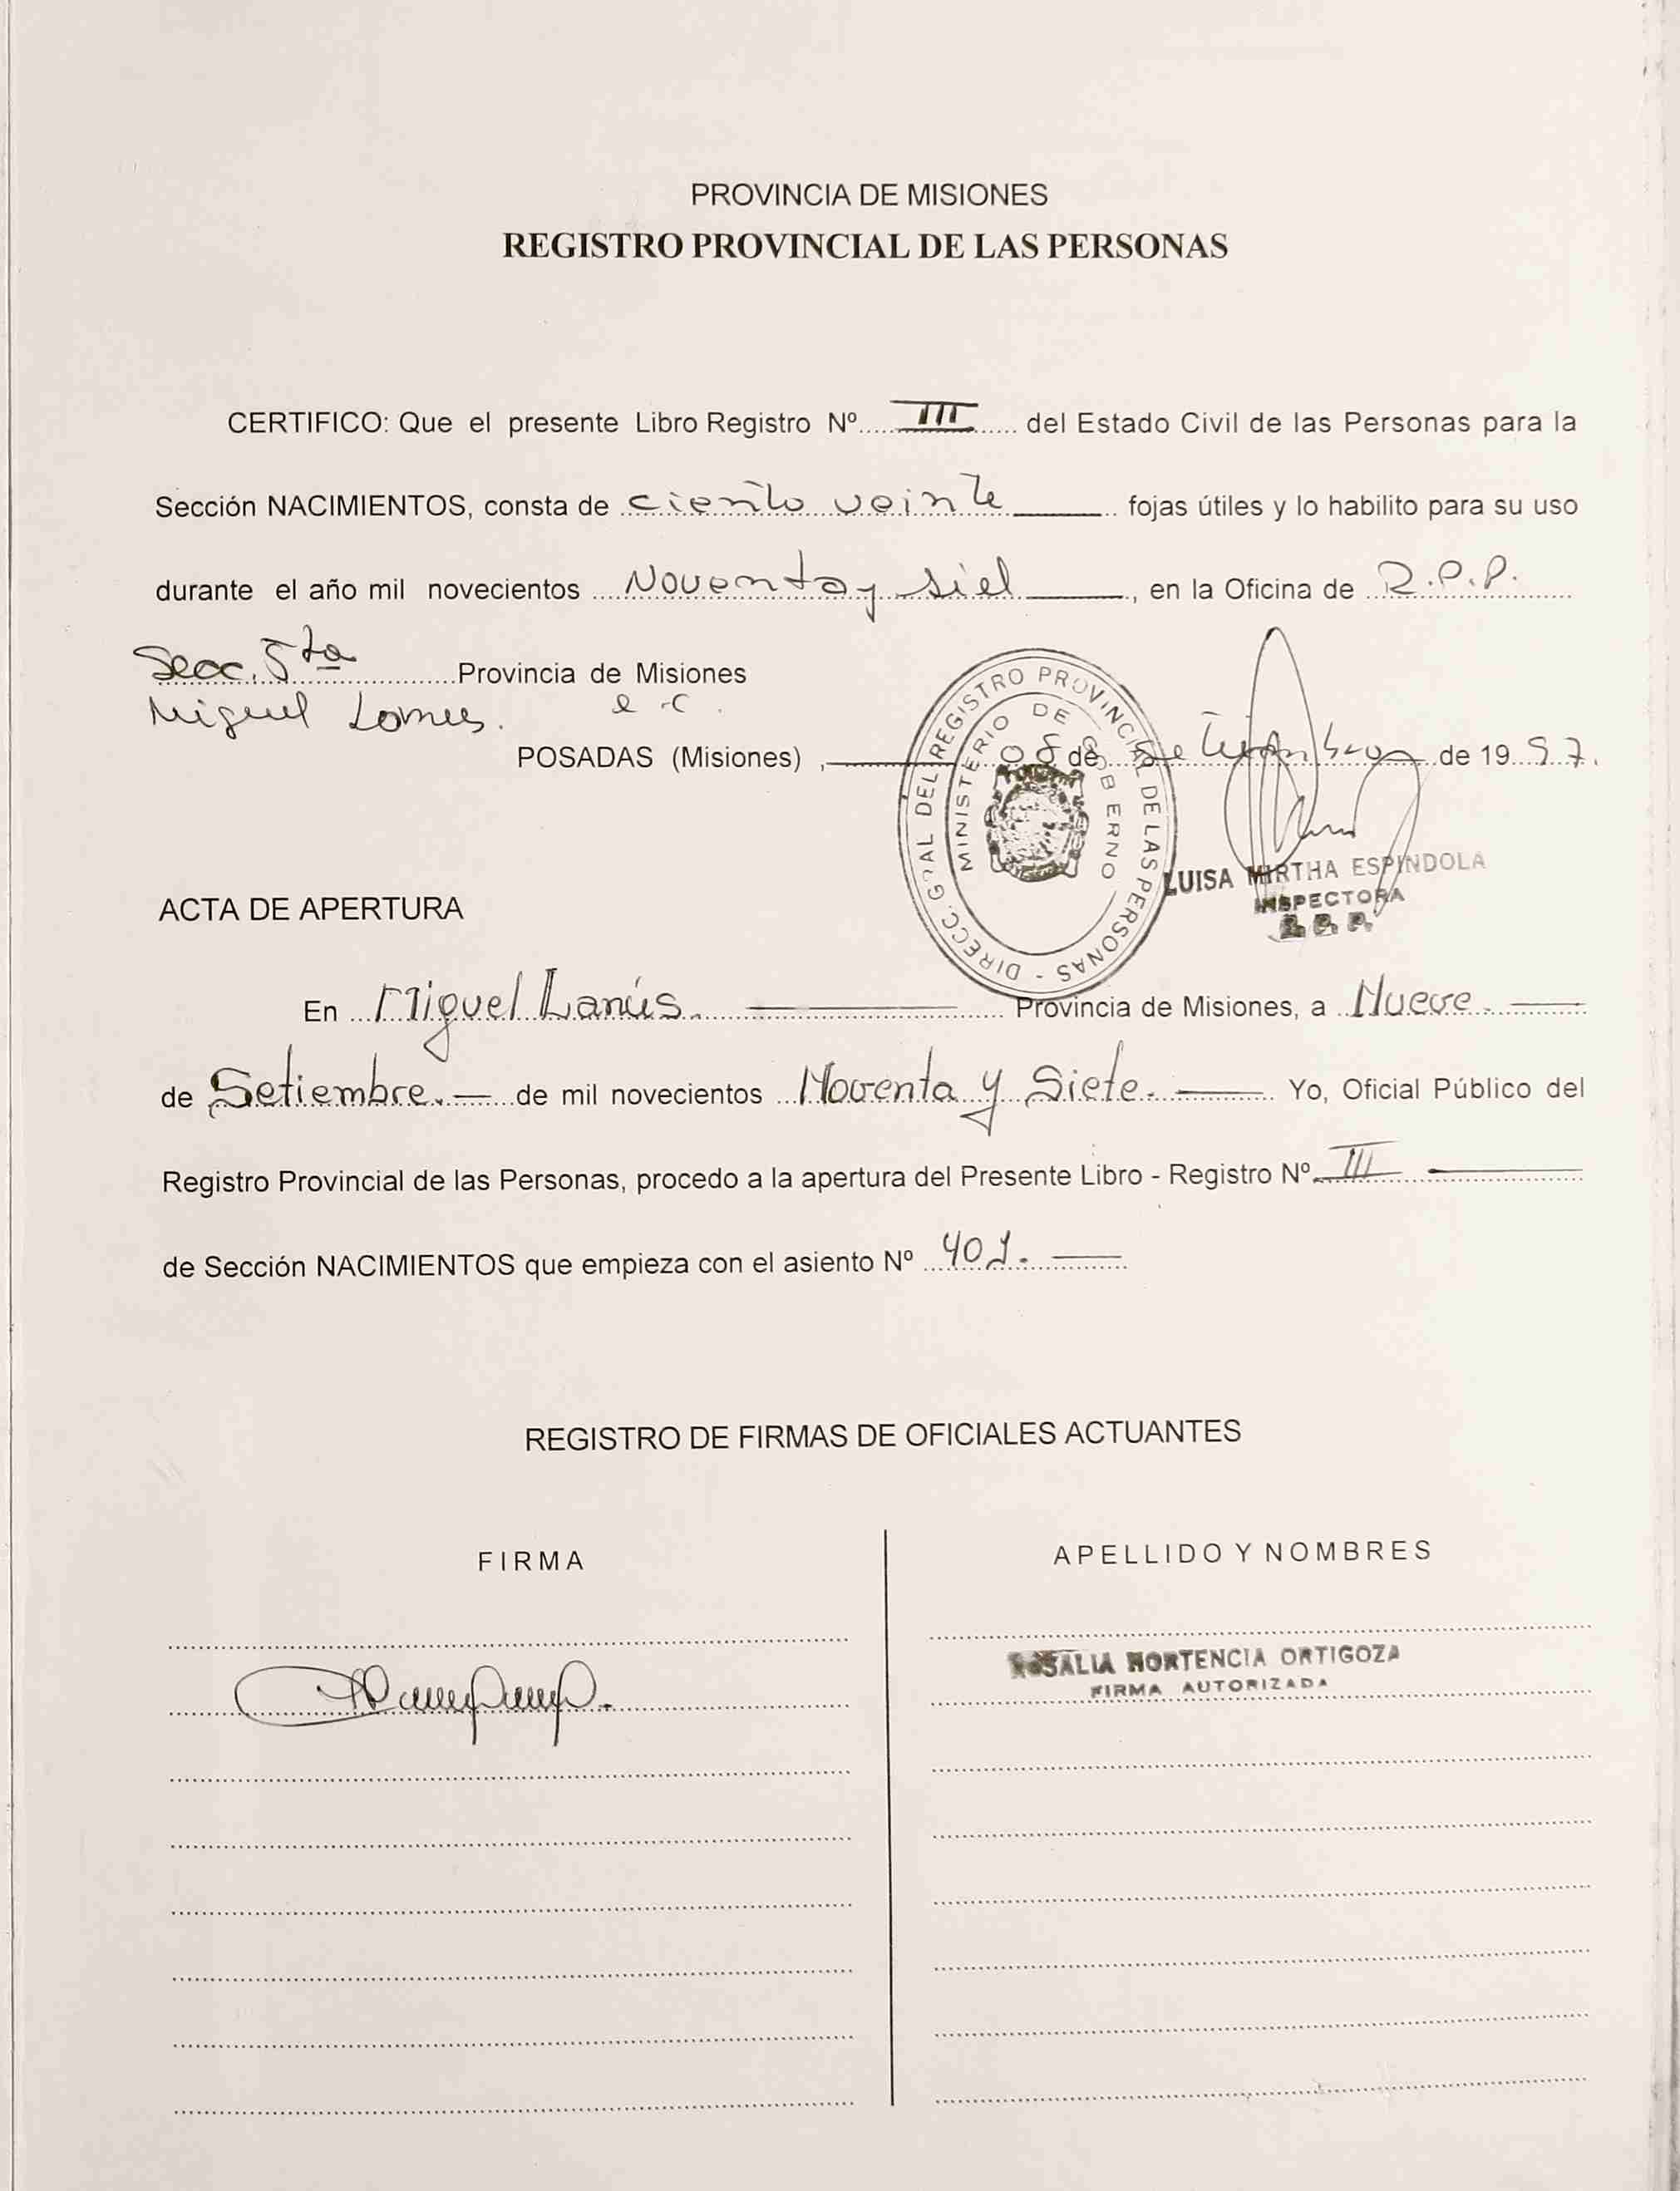 PROVINCIA DE MISIONES
REGISTRO PROVINCIAL DE LAS PERSONAS
CERTIFICO: Que el presente Libro Registro Nº III del Estado Civil de las Personas para la
Sección NACIMIENTOS, consta de ciento veinte fojas útiles y lo habilito para su uso
durante el año mil novecientos Noventa y siet, en la Oficina de R.P.P.
Secc. 5ta Provincia de Misiones
Miguel Lanus.
POSADAS (Misiones), 08 de Setiembre de 1997.
DIRECC. GRAL DEL REGISTRO PROVINCIAL DE LAS PERSONAS -
MINISTERIO DE GOBIERNO
LUISA MIRTHA ESPINDOLA
INSPECTORA
R. P. P.
ACTA DE APERTURA
En Miguel Lanús. Provincia de Misiones, a Nueve.
de Setiembre. de mil novecientos Noventa y Siete. Yo, Oficial Público del
Registro Provincial de las Personas, procedo a la apertura del Presente Libro - Registro Nº III
de Sección NACIMIENTOS que empieza con el asiento Nº 401.
REGISTRO DE FIRMAS DE OFICIALES ACTUANTES
FIRMA APELLIDO Y NOMBRES
ROSALIA HORTENCIA ORTIGOZA
FIRMA AUTORIZADA